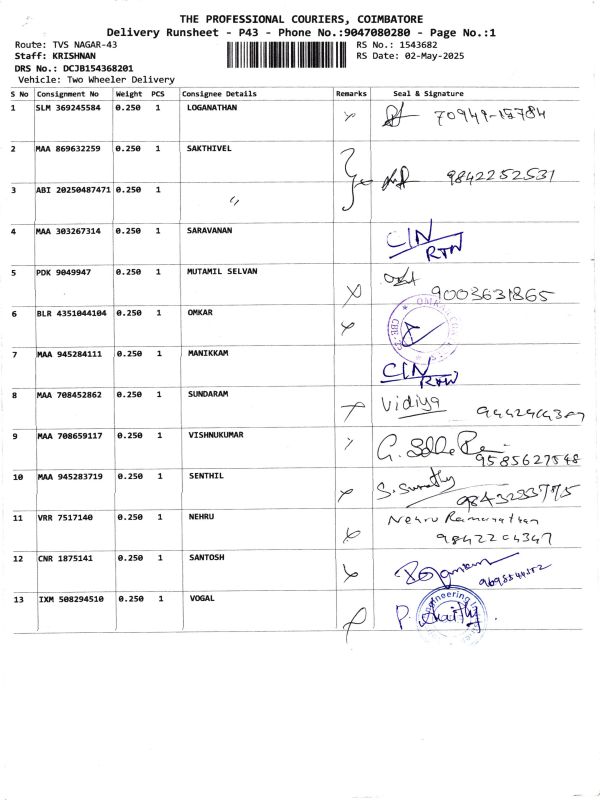 THE PROFESSIONAL COURIERS, COIMBATORE
Delivery Runsheet - P43 - Phone No.:9047080280 - Page No.:1
Route: TVS NAGAR-43 RS No.: 1543682
Staff: KRISHNAN RS Date: 02-May-2025
DRS No.: DCJB154368201
Vehicle: Two Wheeler Delivery
S No Consignment No Weight PCS Consignee Details Remarks Seal & Signature
1 SLM 369245584 0.250 1 LOGANATHAN
2 MAA 869632259 0.250 1 SAKTHIVEL 9842252531
3 ABI 20250487471 0.250 1 〃
4 MAA 303267314 0.250 1 SARAVANAN CIN
RTN
5 PDK 9049947 0.250 1 MUTAMIL SELVAN 9003631865
6 BLR 4351044104 0.250 1 OMKAR
7 MAA 945284111 0.250 1 MANIKKAM CIN
RTN
8 MAA 708452862 0.250 1 SUNDARAM Vidiya
9 MAA 708659117 0.250 1 VISHNUKUMAR 9585627548
10 MAA 945283719 0.250 1 SENTHIL S. Sumathy
11 VRR 7517140 0.250 1 NEHRU Nehru Ramanathan
9842204347
12 CNR 1875141 0.250 1 SANTOSH
13 IXM 508294510 0.250 1 VOGAL P.